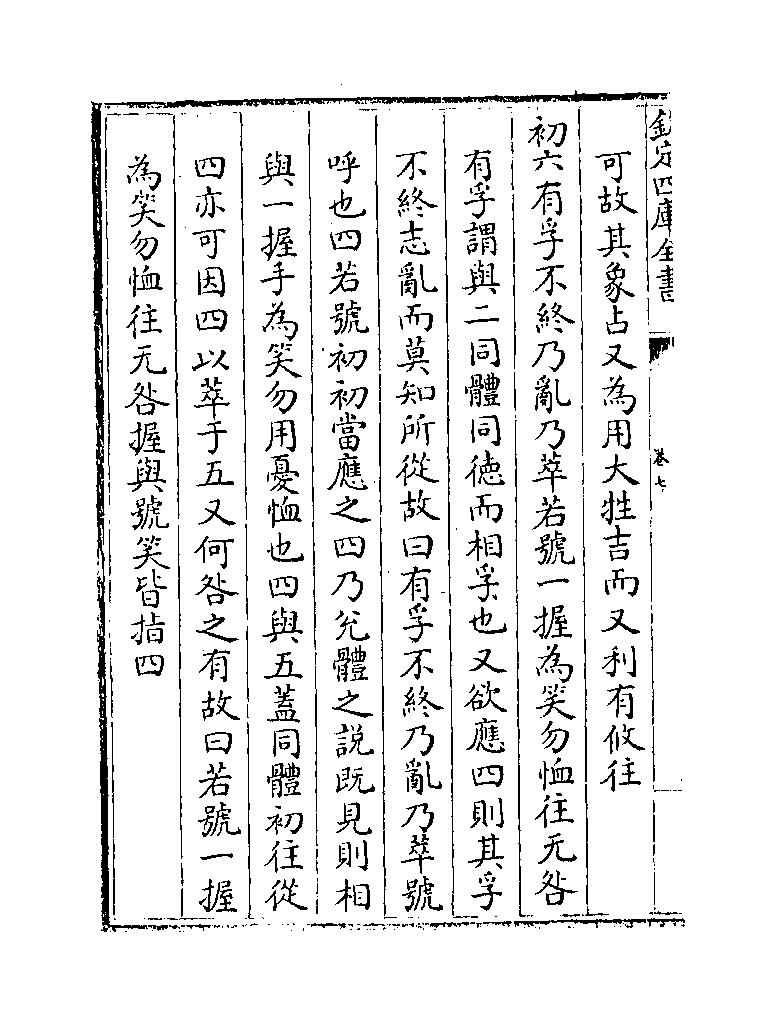 欽定四庫全書
卷七
可故其象占又為用大牲吉而又利有攸往
初六有孚不終乃亂乃萃若號一握為笑勿恤往无咎
有孚謂與二同體同徳而相孚也又欲應四則其孚
不終志亂而莫知所從故曰有孚不終乃亂乃萃號
呼也四若號初初當應之四乃兊體之説既見則相
與一握手為笑勿用憂恤也四與五蓋同體初往從
四亦可因四以萃于五又何咎之有故曰若號一握
為笑勿恤往无咎握與號笑皆指四